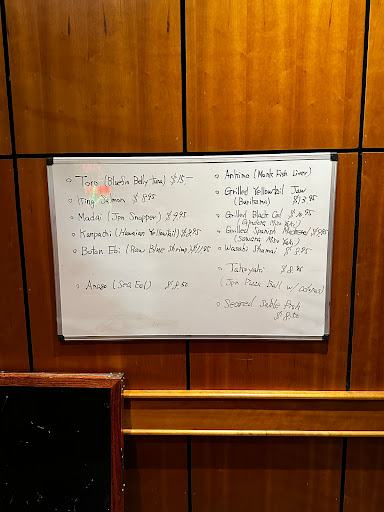 Toro (Bluefin Belly Tuna) $18,-
King Salmon $8.95
Madai (Jpn Snapper) $9.95
Kanpachi (Hawaiian Yellowtail)
Botan Ebi (Raw Blue Shrimp)
Anago (Sea Eel) $8.50
Ankimo (Monk Fish Liver)
Grilled Yellowtail Jaw
(Burikama) $13.95
Grilled Black Cod
Grilled Spanish Mackerel
(Sawara Miso Yaki)
Wasabi Shumai $8.95
Takoyaki $8.95
(Jpn Pizza Ball w/ Octopus)
Seared Sable fish
$8.50